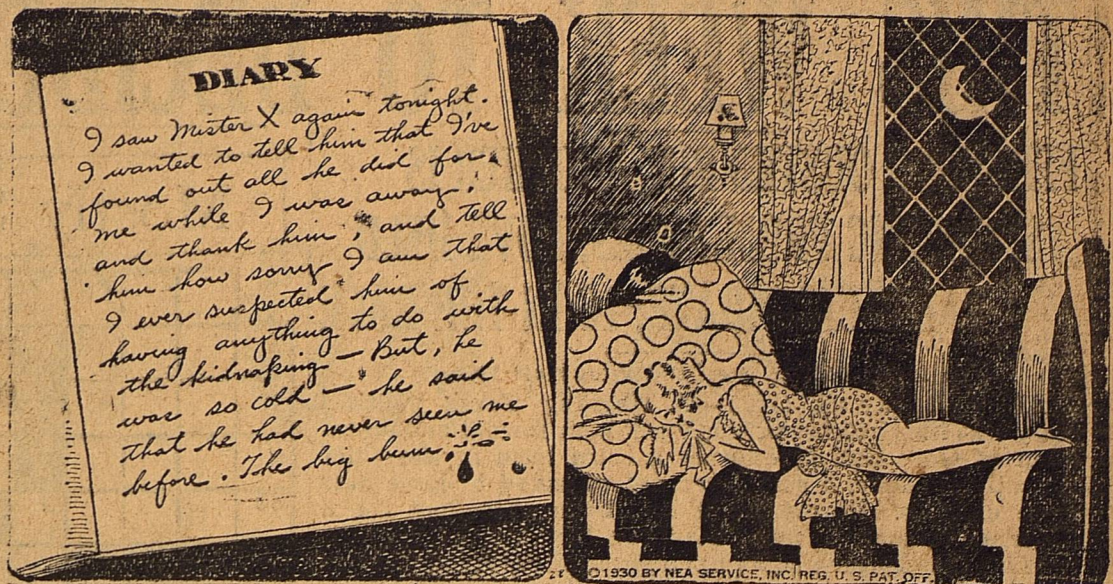 DIARY
I saw Mister X again tonight.
I wanted to tell him that I've
found out all he did for
me while I was away,
and thank him, and tell
him how sorry I am that
I ever suspected him of
having anything to do with
the kidnaping — But, he
was so cold — he said
that he had never seen me
before. The big bum
28
© 1930 BY NEA SERVICE, INC. REG. U. S. PAT. OFF.